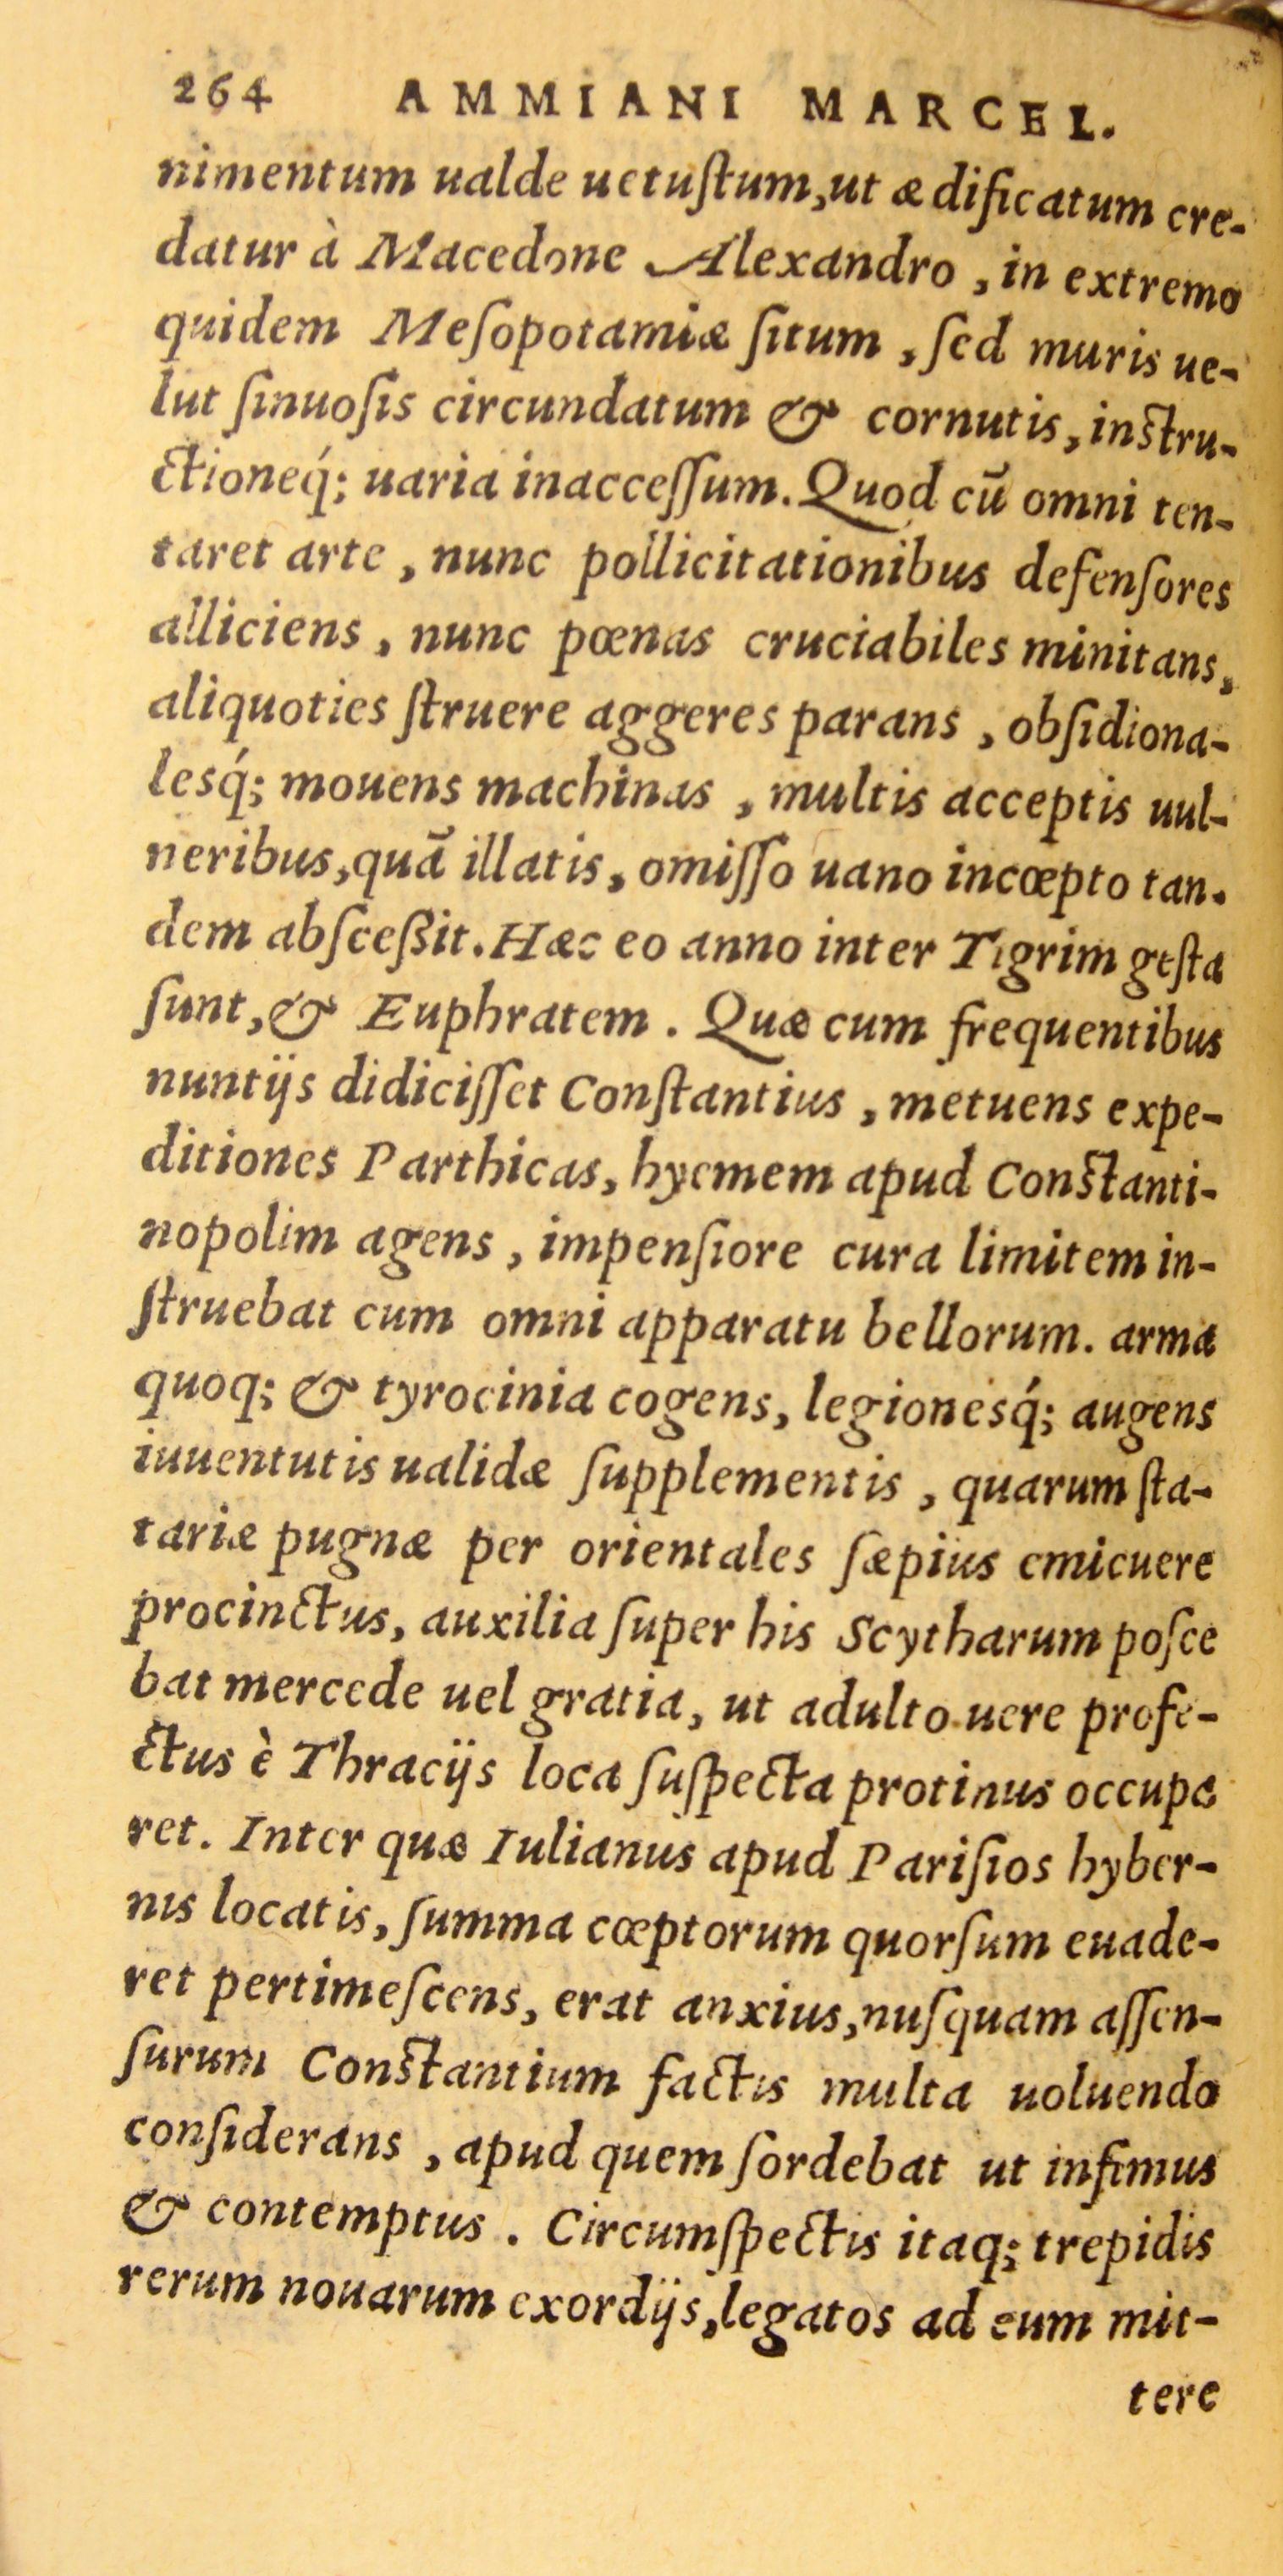 264 AMMIANI MARCEL.
nimentum ualde uetuſtum,ut ædificatum cre-
datur à Macedone Alexandro , in extremo
quidem Meſopotamiæ ſitum , ſed muris ue-
lut ſinuoſis circundatum & cornutis, inſtru-
ctioneq́; uaria inacceſſum. Quod cū omni ten-
taret arte , nunc pollicitationibus defenſores
alliciens , nunc pœnas cruciabiles minitans,
aliquoties ſtruere aggeres parans , obſidiona-
lesq́; mouens machinas , multis acceptis uul-
neribus,quā illatis, omiſſo uano incœpto tan-
dem abſceßit. Hæc eo anno inter Tigrim geſta
ſunt,& Euphratem . Quæ cum frequentibus
nuntijs didiciſſet Conſtantius , metuens expe-
ditiones Parthicas, hyemem apud Conſtanti-
nopolim agens , impenſiore cura limitem in-
ſtruebat cum omni apparatu bellorum. arma
quoq; & tyrocinia cogens, legionesq́; augens
iuuentutis ualidæ ſupplementis , quarum ſta-
tariæ pugnæ per orientales ſæpius emicuere
procinctus, auxilia ſuper his Scytharum poſce
bat mercede uel gratia, ut adulto uere profe-
ctus è Thracijs loca ſuſpecta protinus occupa
ret. Inter quæ Iulianus apud Pariſios hyber-
nis locatis, ſumma cœptorum quorſum euade-
ret pertimeſcens, erat anxius,nuſquam aſſen-
ſurum Conſtantium factis multa uoluendo
conſiderans , apud quem ſordebat ut infimus
& contemptus . Circumſpectis itaq; trepidis
rerum nouarum exordijs,legatos ad eum mit-
tere